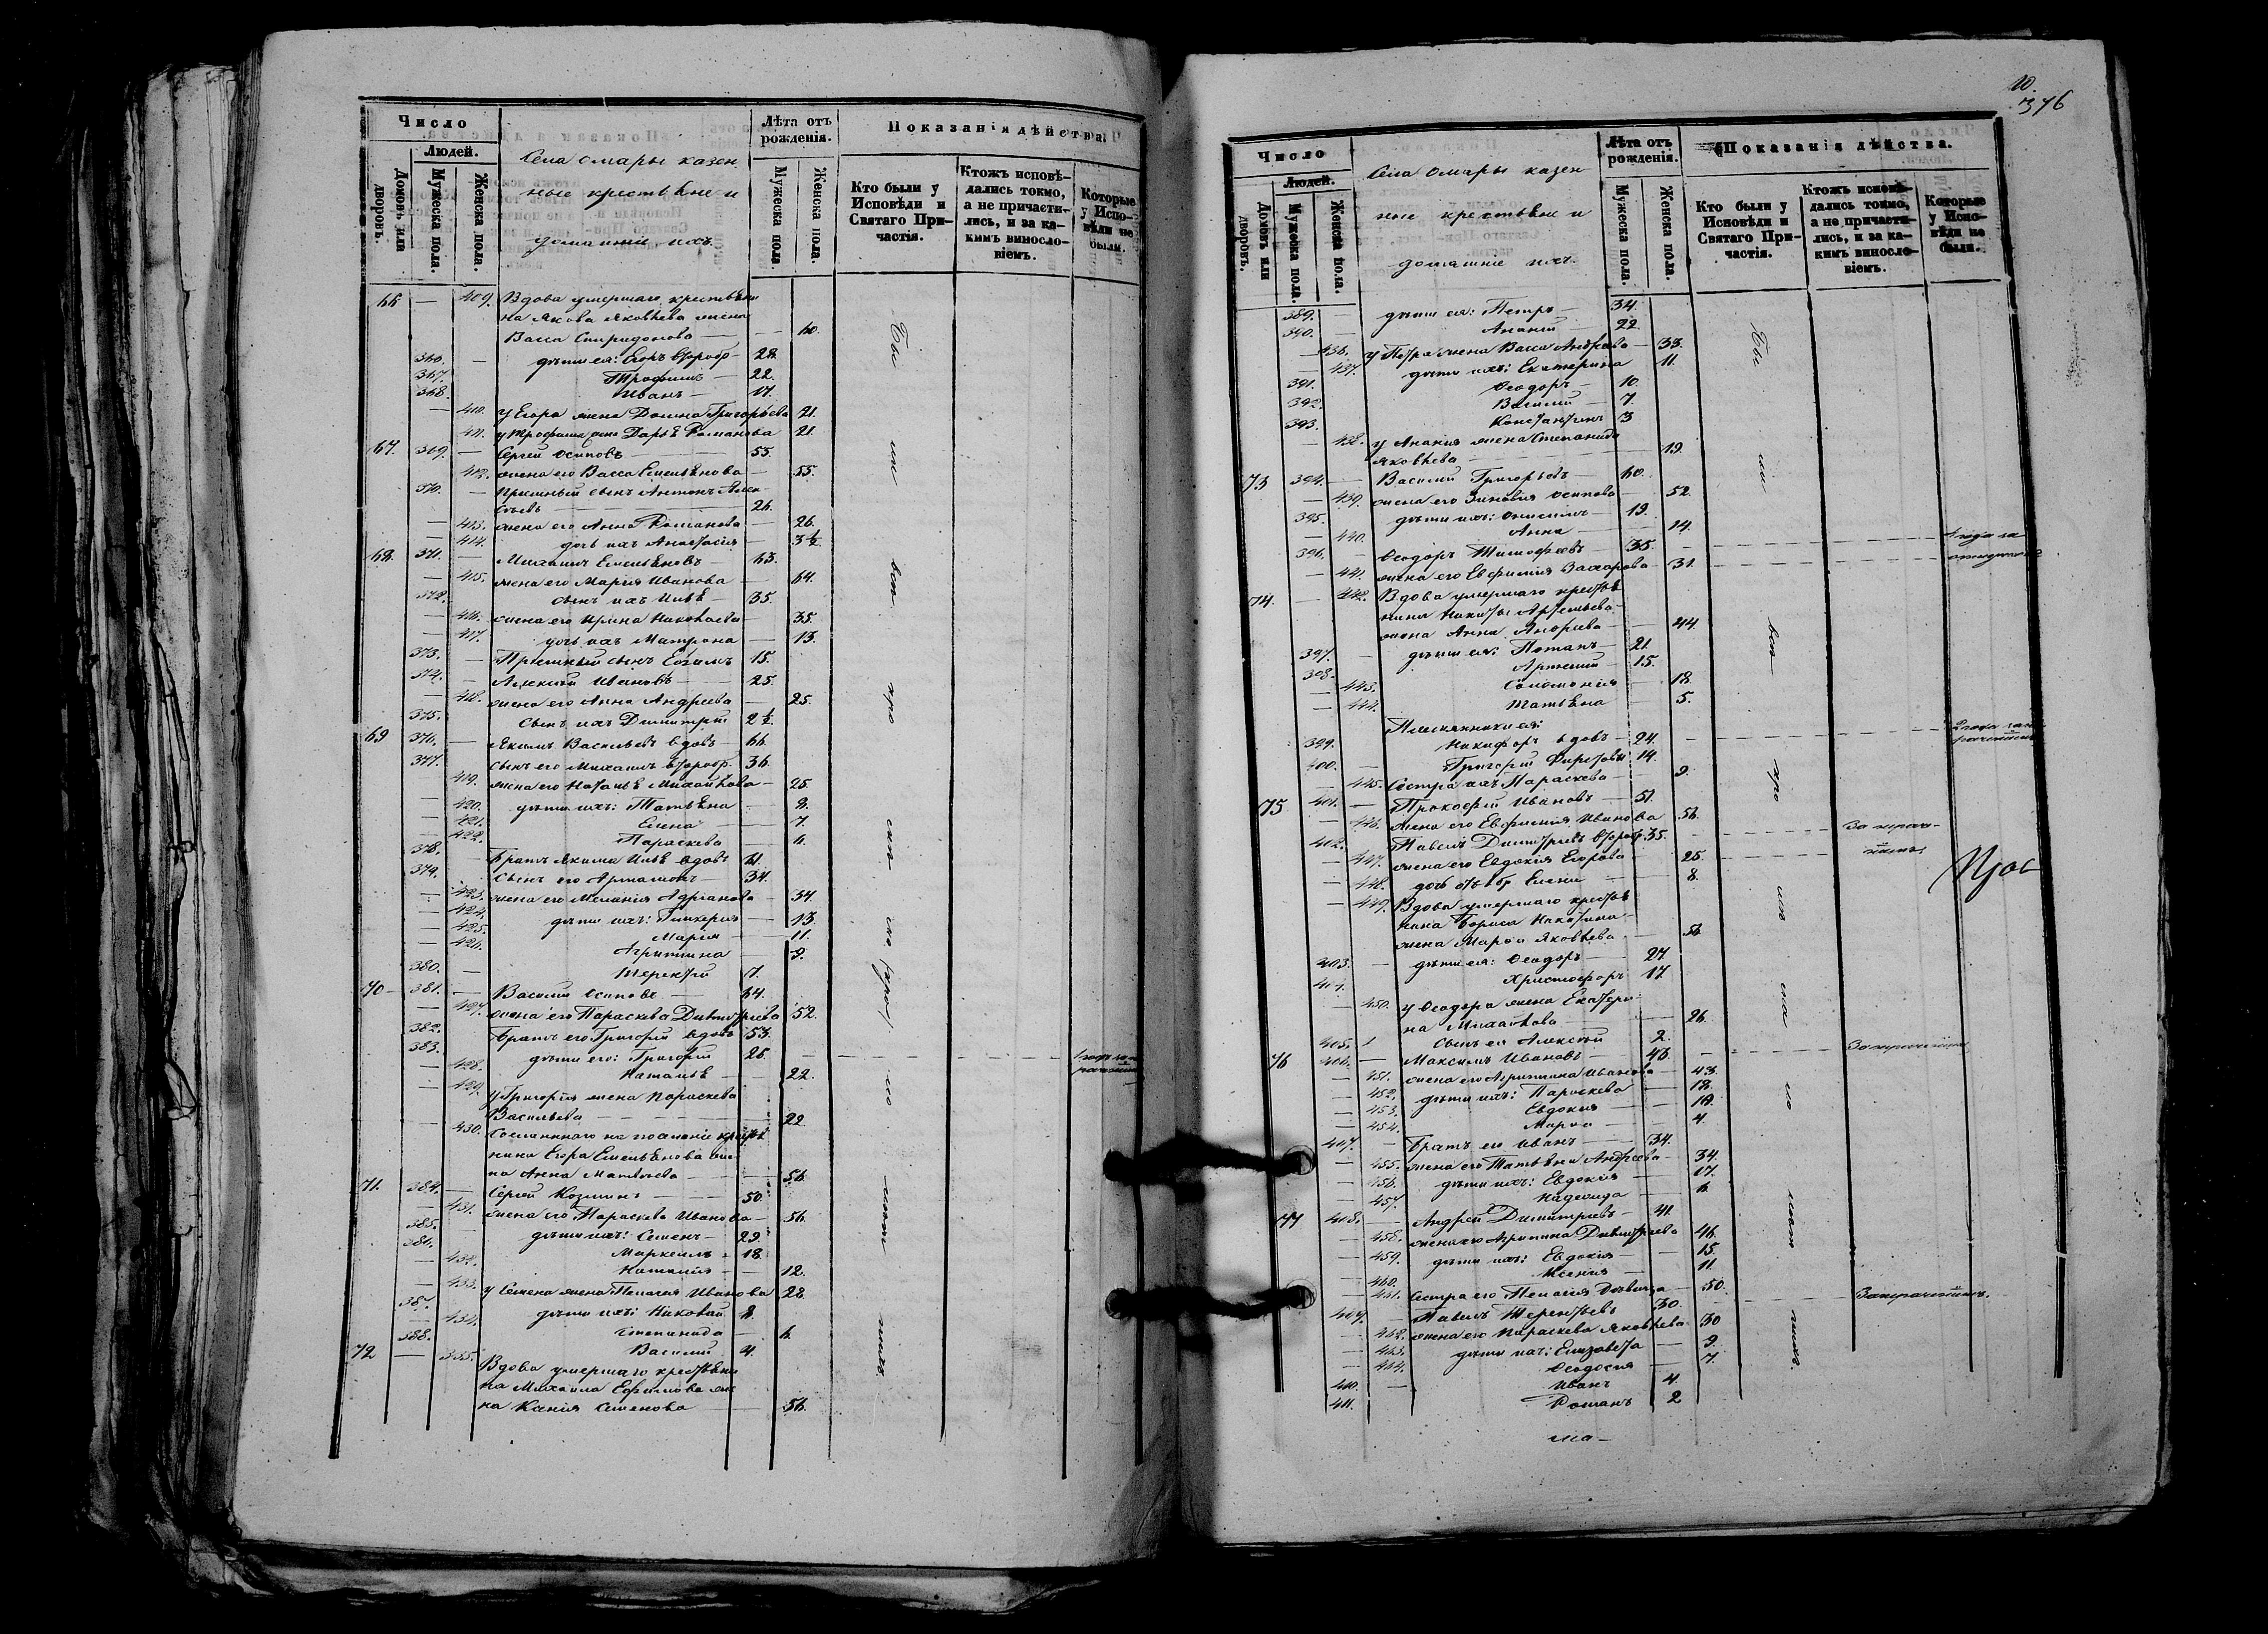 Число
Людей.
Домовъ или дворовъ.
Мужеска пола.
Женска пола.
Села Омары казен
ные крестьяне и
домашніе ихъ.
Лѣта отъ рожденія.
Мужеска пола.
Женска пола.
Показанія дѣйства.
Кто были у Исповѣди и Святаго Причастія.
Ктожъ исповѣдались токмо, а не причастились, и за какимъ винословіемъ.
Которые у Исповѣди не были.
66 — 409. Вдова умершаго крестьяни
на Якова Яковлева жена
Васса Спиридонова — 60.
366. — дѣти ея: Егоръ второбр. 28.
367. Трофимъ — 22.
368. Иванъ — 17.
— 410. у Егора жена Домна Григорьева 21.
411. у Трофима жена Дарья Романова 21.
67. 369. — Сергей Осиповъ — 55.
412. жена его Васса Емельянова — 55.
370. — Пріемный сынъ Антонъ Алек
сѣевъ — 26.
— 413. жена его Анна Романова — 26.
— 414. дочь ихъ Анастасія — 3½
68. 371. — Михаилъ Емельяновъ — 63.
— 415. жена его Марія Иванова — 64.
372. сынъ ихъ Илья — 35.
— 416. жена его Ирина Николаева — 35.
— 417. дочь ихъ Матрона — 13.
373. — Пріемный сынъ Ефимъ 15.
374. — Алексѣй Ивановъ — 25.
— 418. жена его Анна Андреева — 25.
375. сынъ ихъ Димитрій 2½.
69 376. — Якимъ Васильевъ вдовъ — 66.
377. сынъ его Михаилъ второбр. 36.
419. жена его Наталья Михайлова — 25.
— 420. дѣти ихъ: Татьяна — 8.
— 421. Елена — 7.
— 422. Параскева — 6.
378. — Братъ Якима Илья вдовъ 61.
379. Сынъ его Артамонъ — 34.
— 423. жена его Меланія Адріанова — 34.
— 424. дѣти ихъ: Гликерія — 13.
— 425. Марія — 11.
— 426. Агрипина — 9.
380. — Терентій 7.
70 — 381. — Василій Осиповъ — 64.
— 427. жена его Параскева Димитріева 52.
382. Братъ его Григорій вдовъ 53.
383. дѣти его: Григорій 25.
— 428. Наталья — 22.
— 429. у Григорія жена Параскева
Васильева — 22
— 430. Сосланнаго на поселеніе кресть
нина Егора Емельянова же
на Анна Матвѣева — 56.
71. 384. — Сергей Козминъ — 50.
— 431. жена его Параскева Иванова — 56.
385. дѣти ихъ: Семенъ — 29.
386. Маркеллъ — 18.
— 432. Наталія — 12.
— 433. у Семена жена Пелагея Иванова 28.
387. дѣти ихъ: Николай 8.
— 434. Степанида — 6.
388. Василій 4.
72 — 435. Вдова умершаго крестьяни
на Михаила Ефимова же
на Ксенія Семенова — 56.
Бы ли всѣ
10.
376
Число
Людей.
Домовъ или дворовъ.
Мужеска пола.
Женска пола.
Села Омары казен
ные крестьяне и
домашніе ихъ.
Лѣта отъ рожденія.
Мужеска пола.
Женска пола.
Показанія дѣйства.
Кто были у Исповѣди и Святаго Причастія.
Ктожъ исповѣдались токмо, а не причастились, и за какимъ винословіемъ.
Которые у Исповѣди не были.
389. — дѣти ея: Петръ — 34.
390. — Ананій — 22.
— 436. у Петра жена Васса Андреева — 33.
— 437. дѣти ихъ: Екатерина 11.
391. Ѳеодоръ — 10.
392. Василій — 7.
393. Константинъ 3
— 438. у Ананія жена Степанида
Яковлева — 19.
73 394. — Василій Григорьевъ — 60.
— 439. жена его Зиновія Осипова — 52.
395. дѣти ихъ: Онисимъ — 19.
— 440. Анна — 14.
396. — Ѳеодоръ Тимофеевъ — 35.
— 441. жена его Евфимія Захарова — 31.
74. — 442. Вдова умершаго крестья
нина Никиты Артемьева
жена Анна Андреева — 44.
397. — дѣти ея: Потапъ — 21.
398. Артемій — 15.
— 443. Соломонія — 18.
— 444. Татьяна — 5.
Племянники ея:
399. Никифоръ вдовъ — 24.
400. — Григорій Фирсовы 14.
— 445. Сестра ихъ Параскева — 9.
75 401. — Прокофій Ивановъ — 51.
— 446. жена его Евфимія Иванова 56.
402. Павелъ Димитріевъ второбр. 35.
— 447. жена его Евдокія Егорова — 25.
— 448. дочь отъ 1 бр. Елена — 8.
— 449. Вдова умершаго крестья
нина Бориса Никитина
жена Марѳа Яковлева — 56
403. — дѣти ея: Ѳеодоръ — 27
404. Христофоръ 17.
— 450. у Ѳеодора жена Екатери
на Михайлова — 26.
405. сынъ ея Алексѣй 2.
76 406. — Максимъ Ивановъ — 43.
— 451. жена его Агрипина Иванова — 43.
— 452. дѣти ихъ: Параскева — 18.
— 453. Евдокія — 10.
— 454. Марѳа — 4.
407. — Братъ его Иванъ — 34.
— 455. жена его Татьяна Андреева — 34.
— 456. дѣти ихъ: Евдокія — 17.
— 457. Надежда — 6.
77 408. — Андрей Димитріевъ — 41.
— 458. жена его Агрипина Димитріева 46.
— 459. дѣти ихъ: Евдокія — 15.
— 460. Ксенія — 11.
— 461. Сестра его Пелагія Дѣвица — 50.
409. — Павелъ Терентьевъ 30.
— 462. жена его Параскева Яковлева 30
— 463. дѣти ихъ: Елизавета — 9.
— 464. Ѳеодосія — 7.
410. — Иванъ 4.
411. Романъ 2
Бы ли всѣ